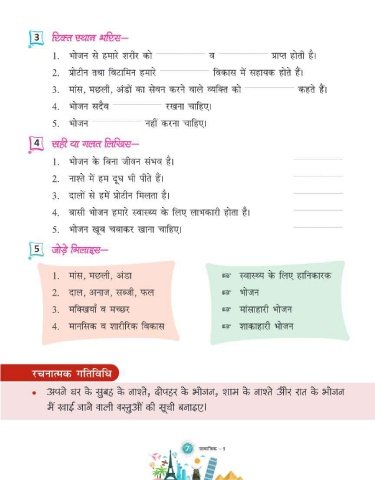 3 रिक्त स्थान भरिए—
1. भोजन से हमारे शरीर को ____________ व ____________ प्राप्त होती है।
2. प्रोटीन तथा विटामिन हमारे ____________ विकास में सहायक होते हैं।
3. मांस, मछली, अंडों का सेवन करने वाले व्यक्ति को ____________ कहते हैं।
4. भोजन सदैव ____________ रखना चाहिए।
5. भोजन ____________ नहीं करना चाहिए।
4 सही या गलत लिखिए—
1. भोजन के बिना जीवन संभव है। ____________
2. नाश्ते में हम दूध भी पीते हैं। ____________
3. दालों से हमें प्रोटीन मिलता है। ____________
4. बासी भोजन हमारे स्वास्थ्य के लिए लाभकारी होता है। ____________
5. भोजन खूब चबाकर खाना चाहिए। ____________
5 जोड़े मिलाइए—
1. मांस, मछली, अंडा ☞ स्वास्थ्य के लिए हानिकारक
2. दाल, अनाज, सब्जी, फल ☞ भोजन
3. मक्खियाँ व मच्छर ☞ मांसाहारी भोजन
4. मानसिक व शारीरिक विकास ☞ शाकाहारी भोजन
रचनात्मक गतिविधि
• अपने घर के सुबह के नाश्ते, दोपहर के भोजन, शाम के नाश्ते और रात के भोजन
में खाई जाने वाली वस्तुओं की सूची बनाइए।
7 सामाजिक - 1